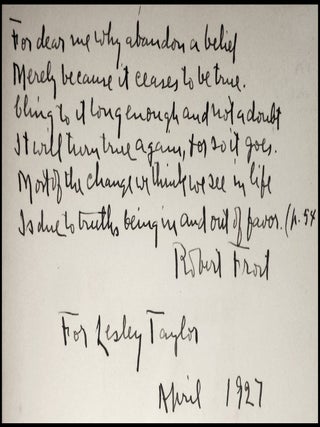 For dear me why abandon a belief
Merely because it ceases to be true.
Cling to it long enough and not a doubt
It will turn true again, for so it goes.
Most of the change we think we see in life
Is due to truths being in and out of favor. (p. 54
Robert Frost
For Lesley Taylor
April 1927